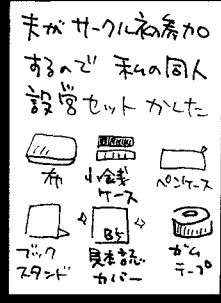 夫がサークル初参加
するので 私の同人
設営セットかした
布
小銭
ケース
ペンケース
ブック
スタンド
B5
見本誌
カバー
ガム
テープ